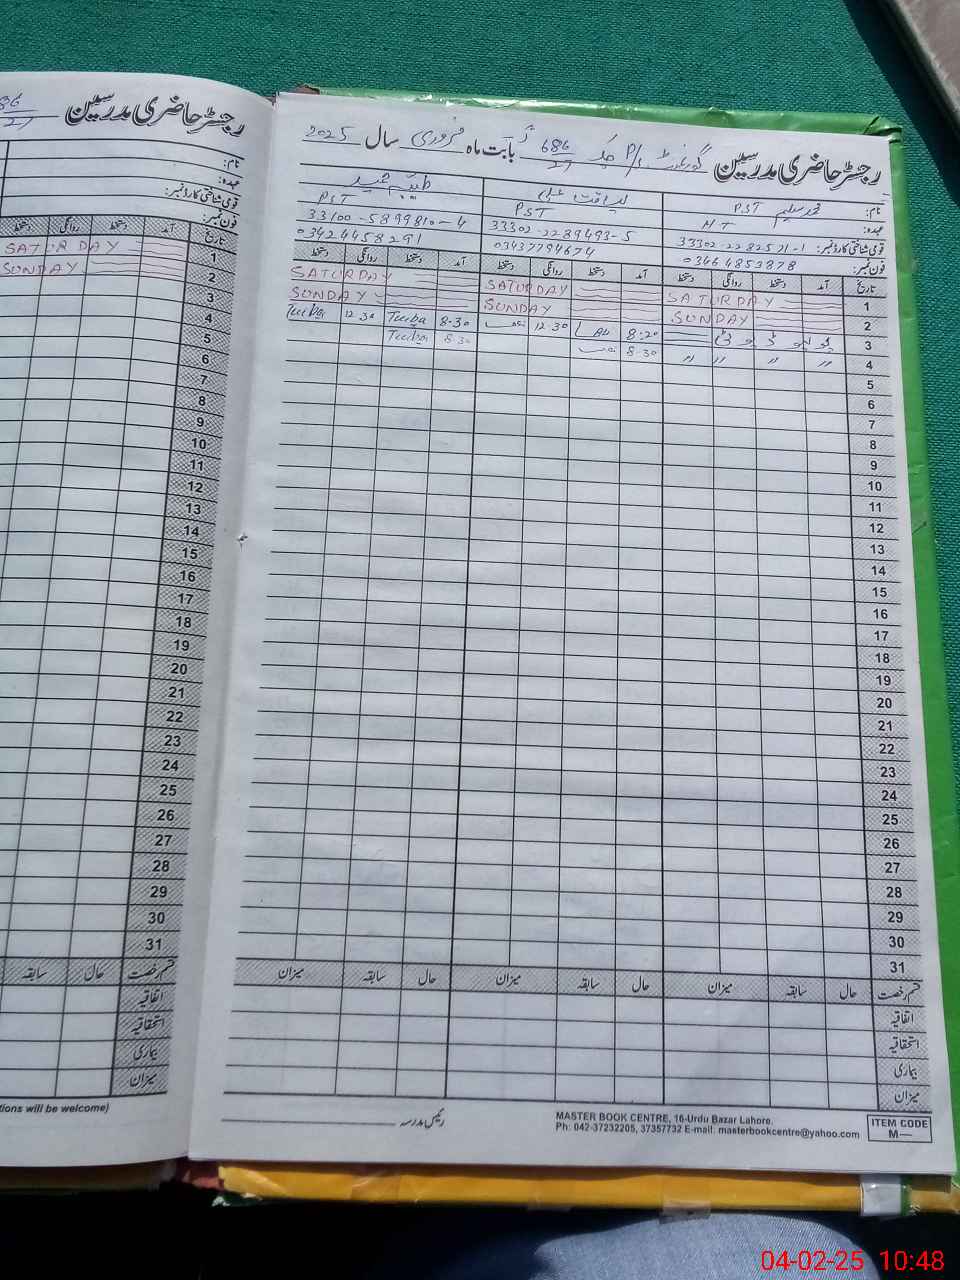 رجسٹر حاضری مدرسین
نام:
عہدہ:
قومی شناختی کارڈ نمبر:
فون نمبر:
تاریخ آمد دستخط روانگی دستخط
1 SATURDAY
2 SUNDAY
3
4
5
6
7
8
9
10
11
12
13
14
15
16
17
18
19
20
21
22
23
24
25
26
27
28
29
30
31
قسم رخصت حال سابقہ
اتفاقیہ
استحقاقیہ
بیماری
میزان
tions will be welcome)
رجسٹر حاضری مدرسین گورنمنٹ P/S چک 686/27 گ بابت ماہ فروری سال 2025
نام: محمد سلیم PST لیاقت علی طیبہ حمید
عہدہ: HT PST PST
قومی شناختی کارڈ نمبر: 33302-2282521-1 33302-2289493-5 33100-5899810-4
فون نمبر: 03464853878 03437794674 03424458291
تاریخ آمد دستخط روانگی دستخط آمد دستخط روانگی دستخط آمد دستخط روانگی دستخط
1 SATURDAY SATURDAY SATURDAY
2 SUNDAY SUNDAY SUNDAY
3 پولیو ڈیوٹی 8:20 12:30 8:30 12:30
4 " " " " 8:30 8:30
5
6
7
8
9
10
11
12
13
14
15
16
17
18
19
20
21
22
23
24
25
26
27
28
29
30
31
قسم رخصت حال سابقہ میزان حال سابقہ میزان حال سابقہ میزان
اتفاقیہ
استحقاقیہ
بیماری
میزان
رئیس مدرسہ
MASTER BOOK CENTRE, 16-Urdu Bazar Lahore.
Ph: 042-37232205, 37357732 E-mail: masterbookcentre@yahoo.com
ITEM CODE
M—
04-02-25 10:48